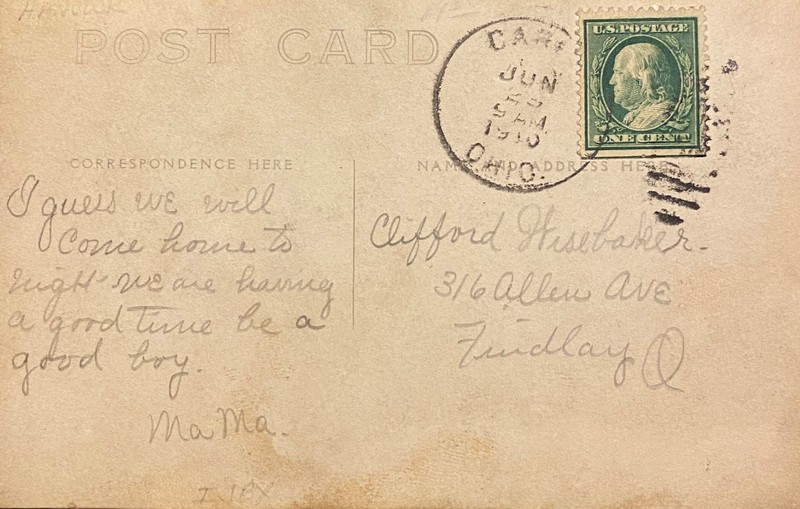 POST CARD
U.S. POSTAGE
ONE CENT
JUN
9 AM
1910
OHIO.
CORRESPONDENCE HERE
NAME AND ADDRESS HERE
I guess we will
come home to
night we are having
a good time be a
good boy.
MaMa.
Clifford Wisebaker.
316 Allen Ave
Findlay O